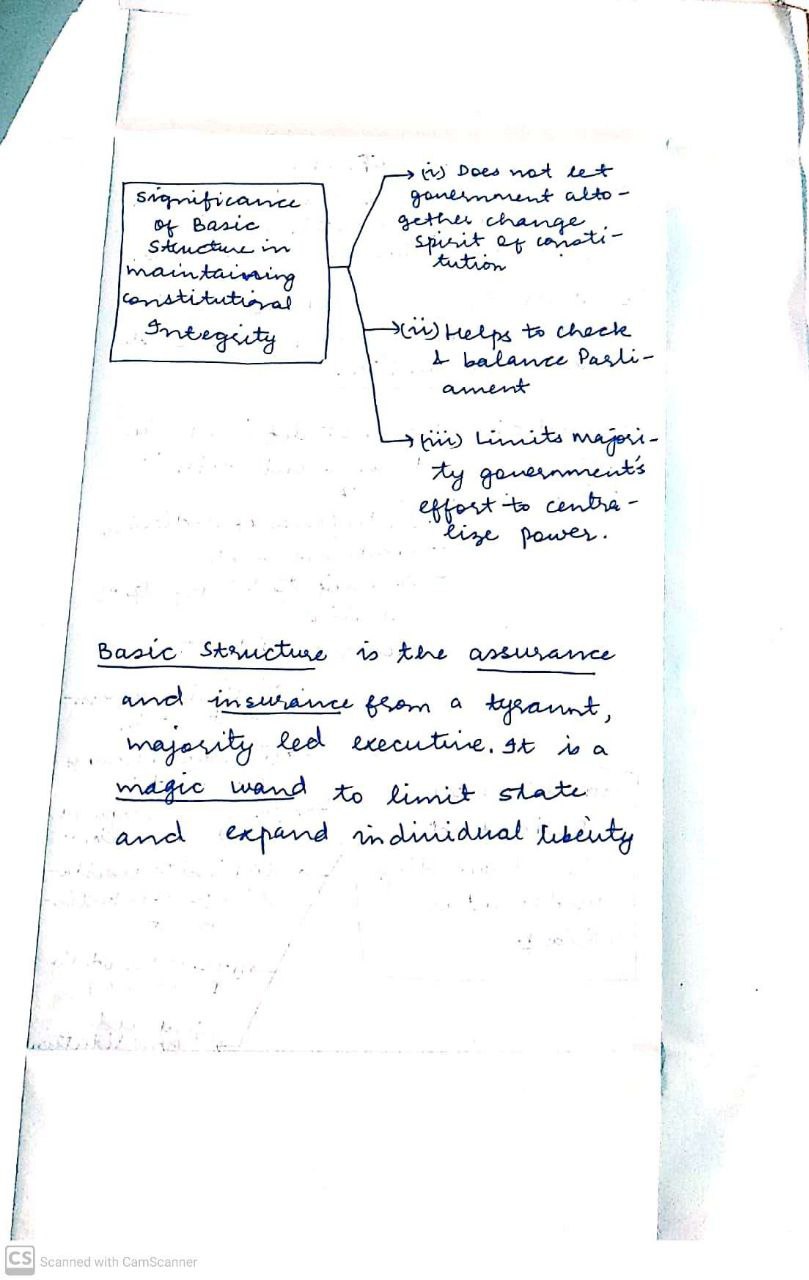 Significance
of Basic
Structure in
maintaining
constitutional
Integrity
(i) Does not let
government alto-
gether change
spirit of consti-
tution
(ii) Helps to check
& balance Parli-
ament
(iii) Limits majori-
ty government's
effort to centra-
lize power.
Basic Structure is the assurance
and insurance from a tyrannt,
majority led executive. It is a
magic wand to limit state
and expand individual liberty
CS Scanned with CamScanner